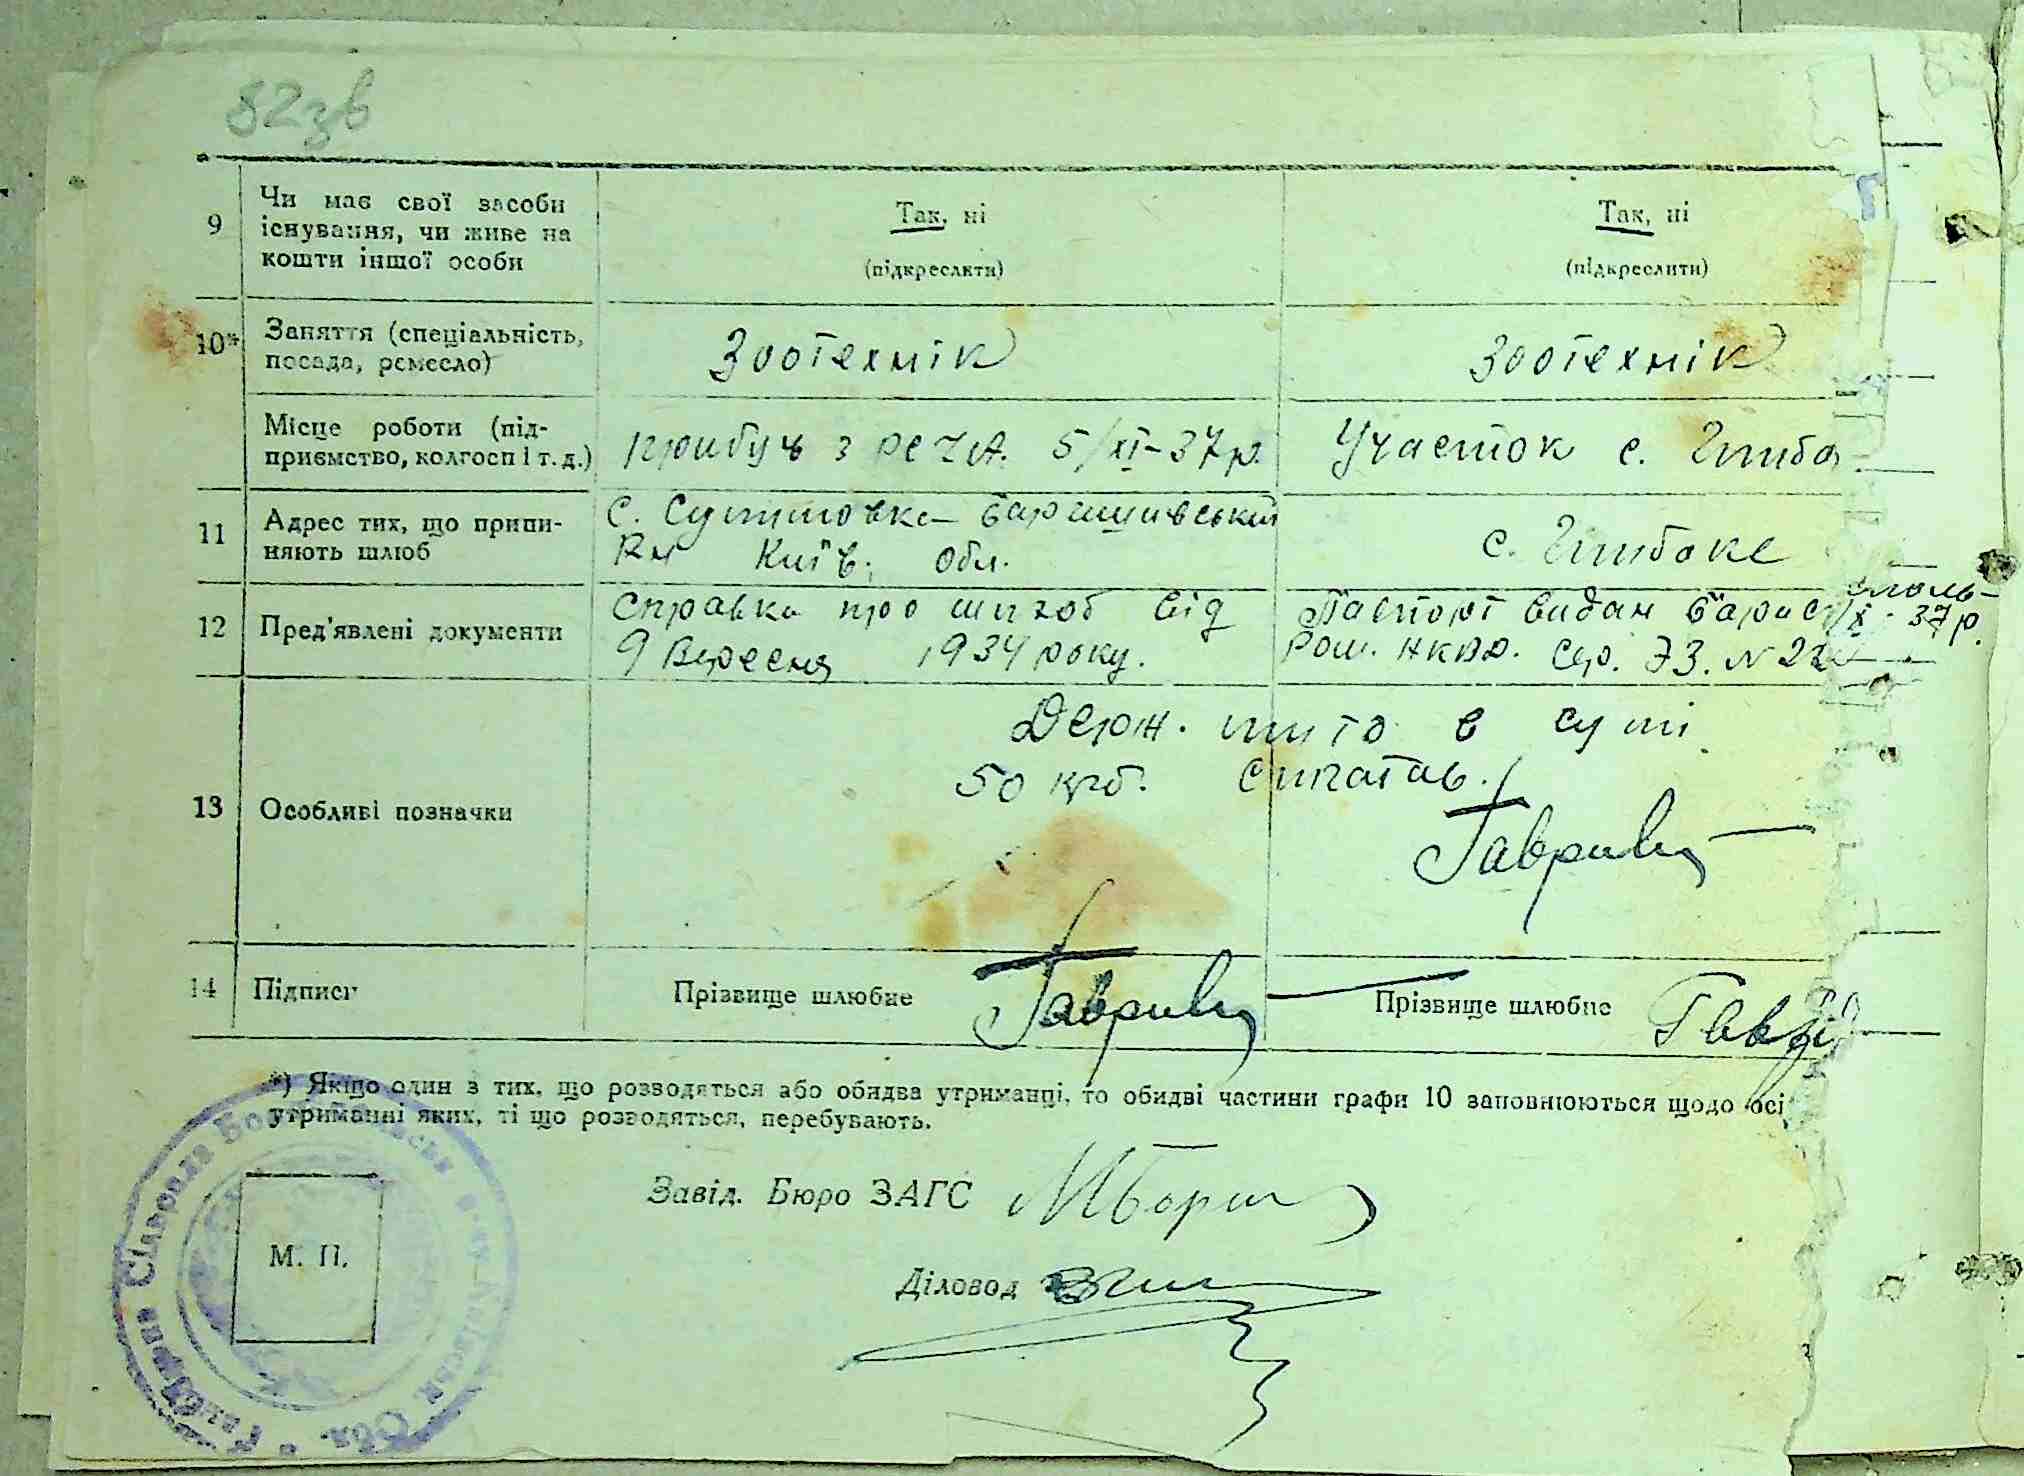 82зв
9 Чи має свої засоби існування, чи живе на кошти іншої особи
Так, ні
(підкреслити)
Так, ні
(підкреслити)
10*) Заняття (спеціальність, посада, ремесло)
Зоотехнік
Зоотехнік
Місце роботи (підприємство, колгосп і т. д.)
прибув з РСЧА. 5/XI-37р.
Участок с. Глибо
11 Адрес тих, що припиняють шлюб
с. Баришивський
Рн Київ. обл.
с. Глибоке
12 Пред'явлені документи
Справка про шлюб від
9 Вересня 1934 року.
Паспорт видан Борис
Рош. НКВД. Сер. ЭЗ. N 22
37р.
13 Особливі позначки
Держ. мито в сумі
50 крб. сплатав.
Гаврилец
14 Підписи
Прізвище шлюбне Гаврилец
Прізвище шлюбне Гавр
*) Якщо один з тих, що розводяться або обидва утриманці, то обидві частини графи 10 заповнюються щодо осі
утриманні яких, ті що розводяться, перебувають.
Завід. Бюро ЗАГС
М. П.
Діловод